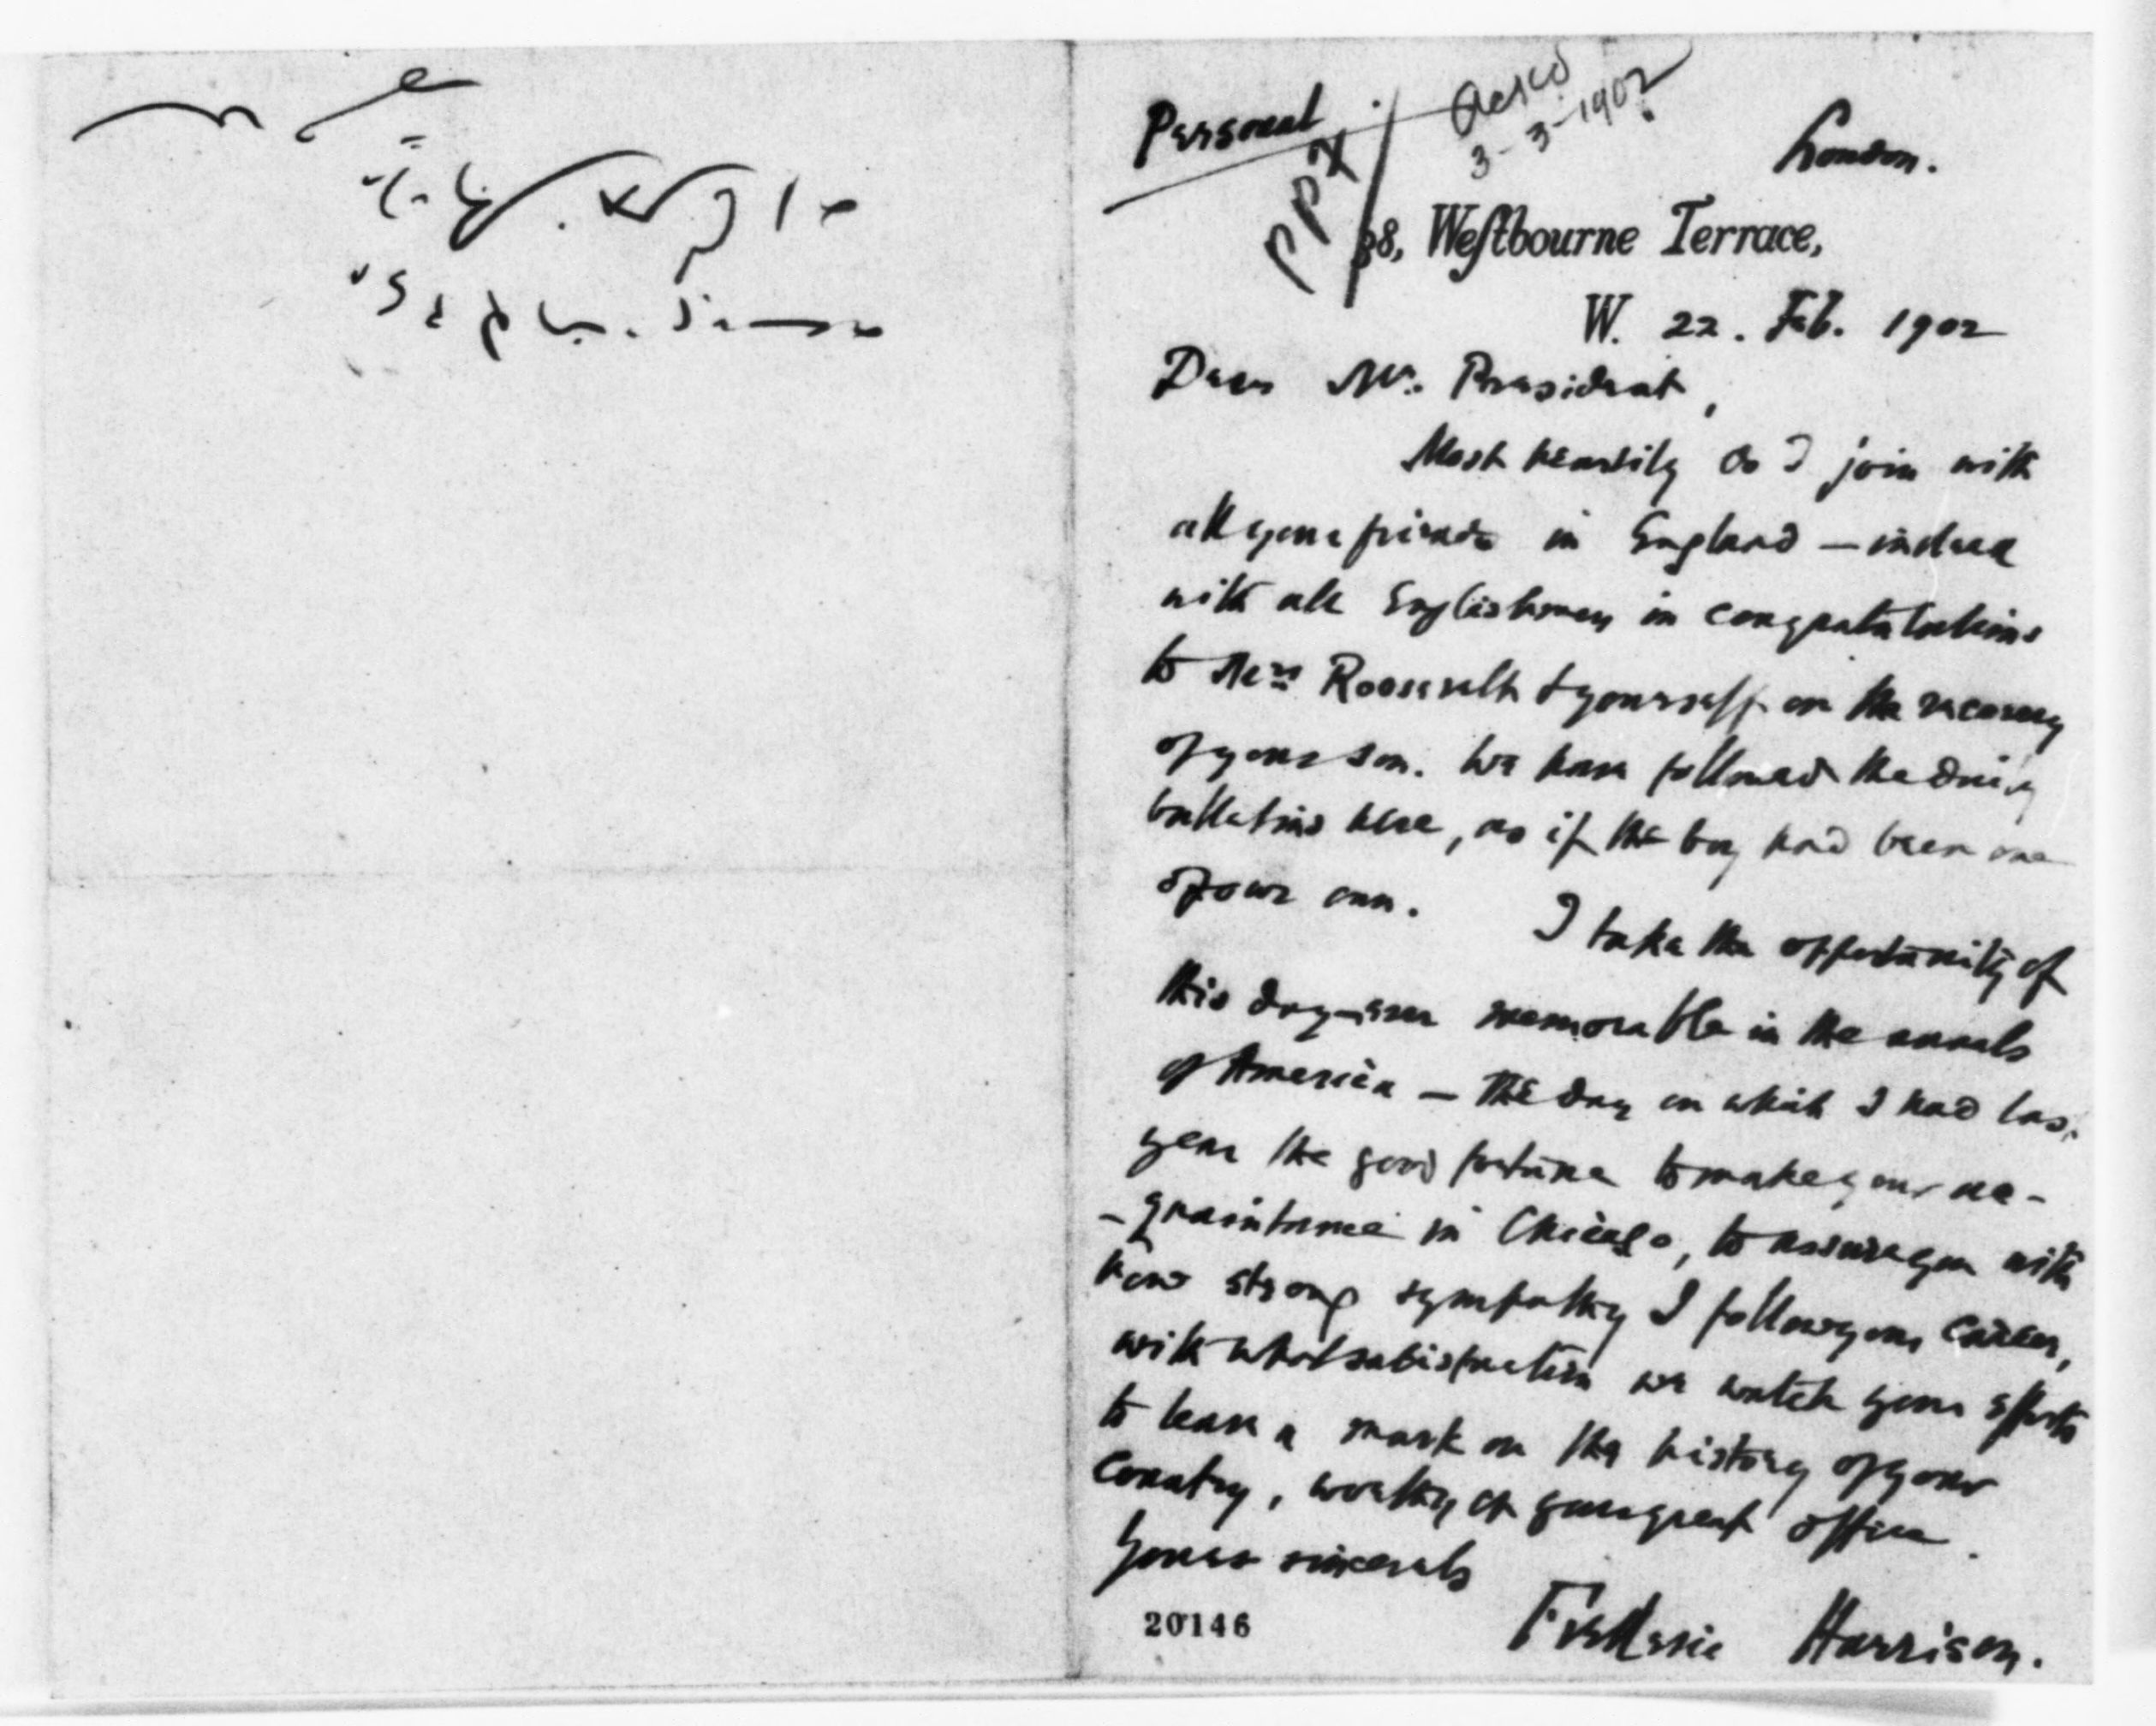 Personal
Ackd
3-3-1902
PPF
London.
38, Westbourne Terrace,
W. 22. Feb. 1902
Dear Mr. President,
Most heartily do I join with
all your friends in England – indeed
with all Englishmen in congratulations
to Mrs Roosevelt & yourself on the recovery
of your son. We have followed the daily
bulletins here, as if the boy had been one
of our own. I take the opportunity of
this day – ever memorable in the annals
of America – the day on which I had last
year the good fortune to make your ac-
-quaintance in Chicago, to assure you with
how strong sympathy I follow your career,
with what satisfaction we watch your efforts
to leave a mark on the history of your
Country, worthy of your great office.
Yours sincerely
Frederic Harrison.
20146